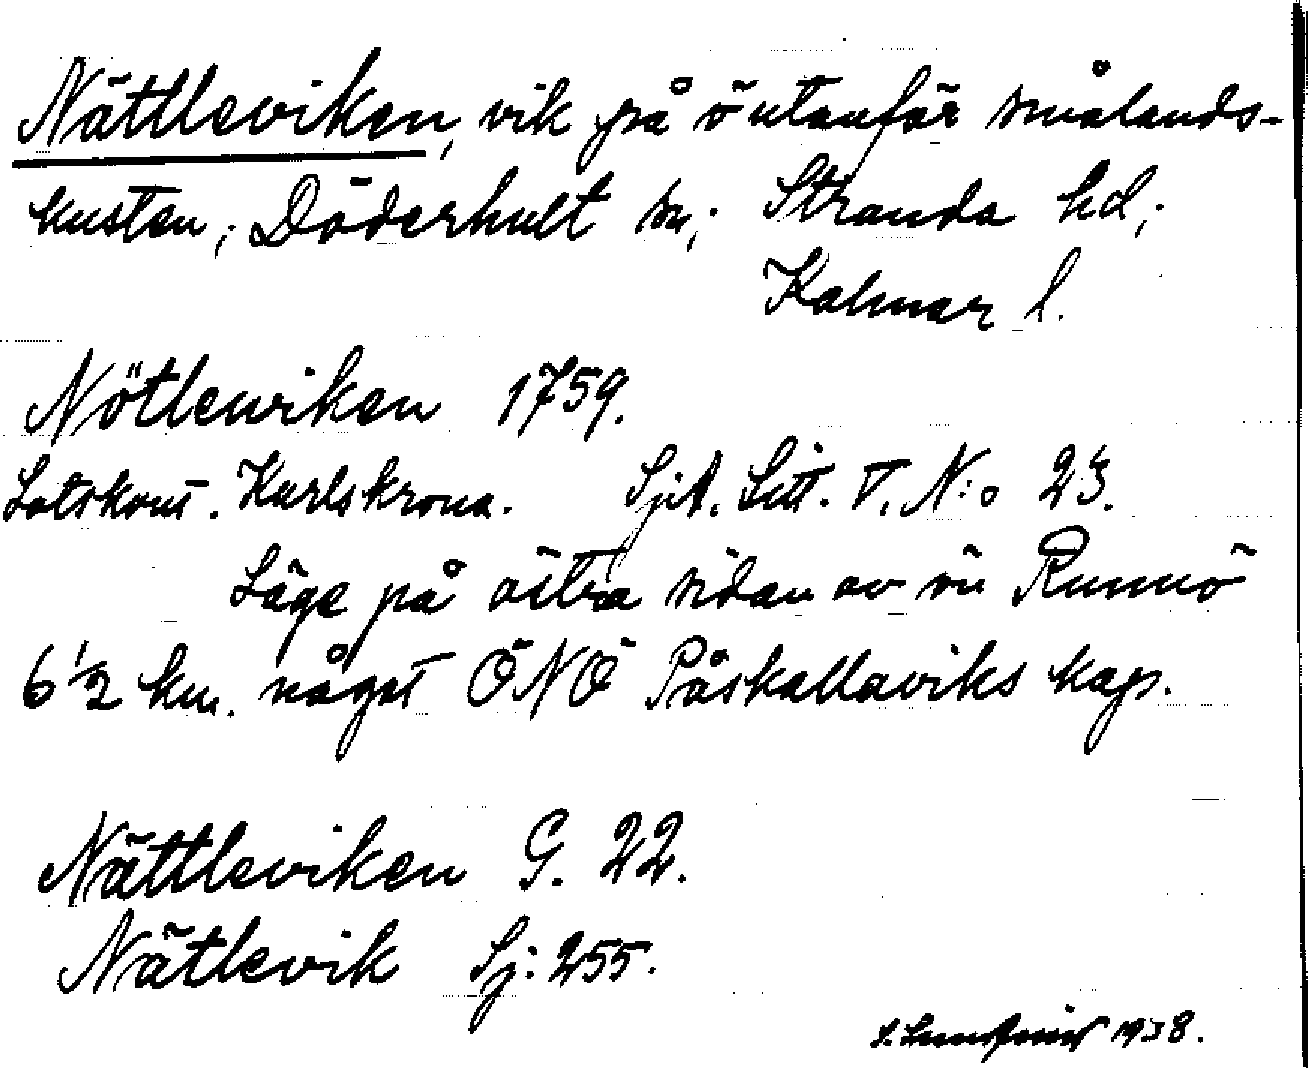 Nättleviken, vik på ö utanför smålands-
kusten, Döderhult sn; Stranda hd;
Kalmar l.
Nötlewiken 1759.
Lotskont. Karlskrona. Sjit. Litt. V. N:o 23.
Läge på östra sidan av ön Runnö
6 1/2 km. något ÖNÖ Påskallaviks kap.
Nättleviken G. 22.
Nätlevik Sj: 255.
1938.